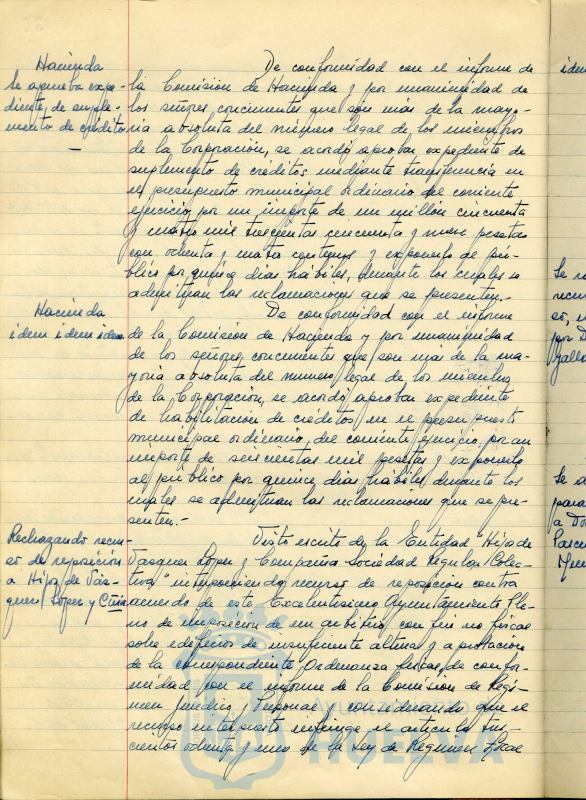 Hacienda
Se aprueba expe-
diente, de suple-
mento de crédito
De conformidad con el informe de
la Comisión de Hacienda y por unanimidad de
los señores concurrentes que son más de la mayo-
ria absoluta del número legal de los miembros
de la Corporación, se acordó aprobar expediente de
suplemento de créditos mediante transferencia en
el presupuesto municipal ordinario del corriente
ejercicio por un importe de un millón cincuenta
y cuatro mil trescientas cincuenta y nueve pesetas
con ochenta y cuatro centimos y exponerlo al pú-
blico por quince días hábiles, durante los cuales se
admitiran las reclamaciones que se presenten.-
Hacienda
idem idem idem
De conformidad con el informe
de la Comisión de Hacienda y por unanimidad
de los señores concurrentes que son mas de la ma-
yoria absoluta del numero legal de los miembros
de la Corporación, se acordó aprobar expediente
de habilitación de créditos en el presupuesto
municipal ordinario, del corriente ejercicio, por un
importe de seiscientas mil pesetas y exponerlo
al público por quince días hábiles durante los
cuales se admitiran las reclamaciones que se pre-
senten.-
Rechazando recur-
so de reposición
a Hijos de Vás-
quez López y Cñia
Visto escrito de la Entidad "Hijos de
Vasquez López y Compañia Sociedad Regular Colec-
tiva" interponiendo recurso de reposición contra
acuerdo de este Excelentisimo Ayuntamiento Ple-
no de imposición de un arbitrio con fin no fiscal
sobre edificios de insuficiente altura y aprobación
de la correspondiente Ordenanza fiscal, de confor-
midad con el informe de la Comisión de Régi-
men Juridico y Personal y considerando que el
recurso interpuesto infringe el articulo tres-
cientos ochenta y uno de la Ley de Regimen Local
AYUNTAMIENTO DE
HUELVA
idem
Se re
recur
so, in
por D
Galle
Se a
para
a Do
Pasc